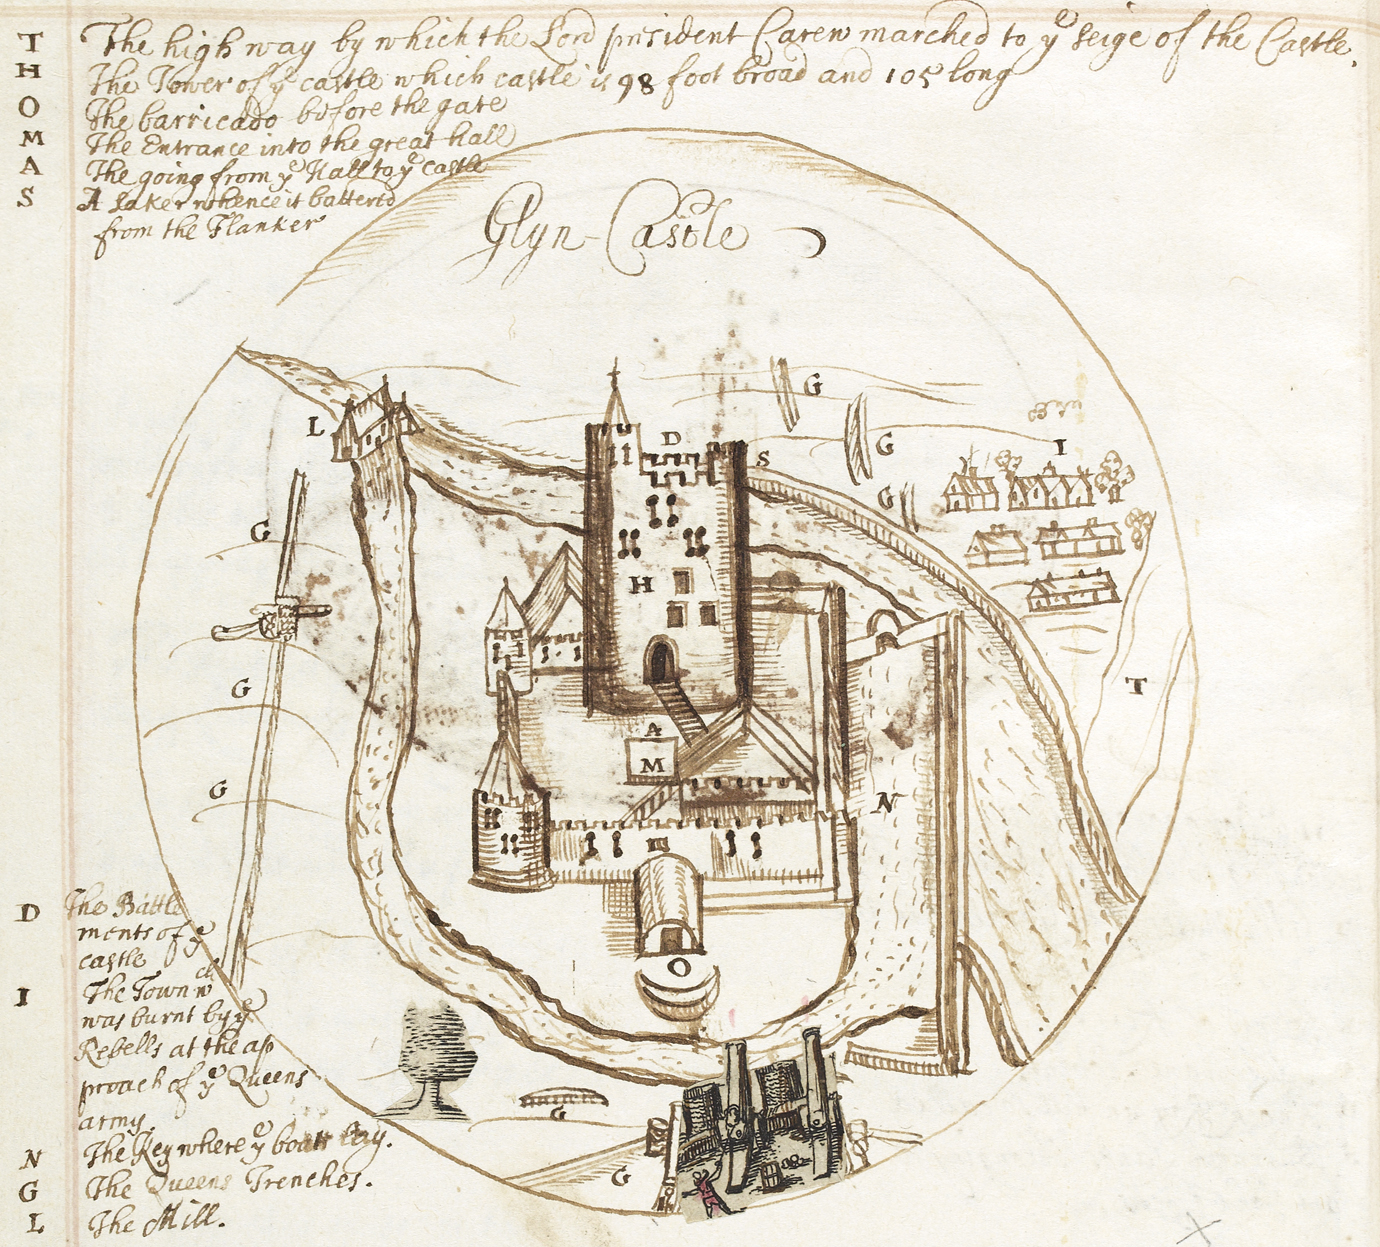 T The high way by which the Lord president Carew marched to yͤ seige of the Castle.
H The Tower of yͤ castle which castle is 98 foot broad and 105 long
O The barricado before the gate
M The Entrance into the great hall
A The going from yͤ Hall to yͤ castle
S A saker whence it batterd
from the Flanker
Glyn-Castle
G
L
D
G
I
S
G
G
H
G
T
A
M
G
N
O
D The Battle
ments of yͤ
castle
I The Town wᶜʰ
was burnt by yͤ
Rebells at the ap
proach of yͤ Queens
army.
G
N The Key where yͤ boats lay.
G The Queens Trenches.
G
L The Mill.